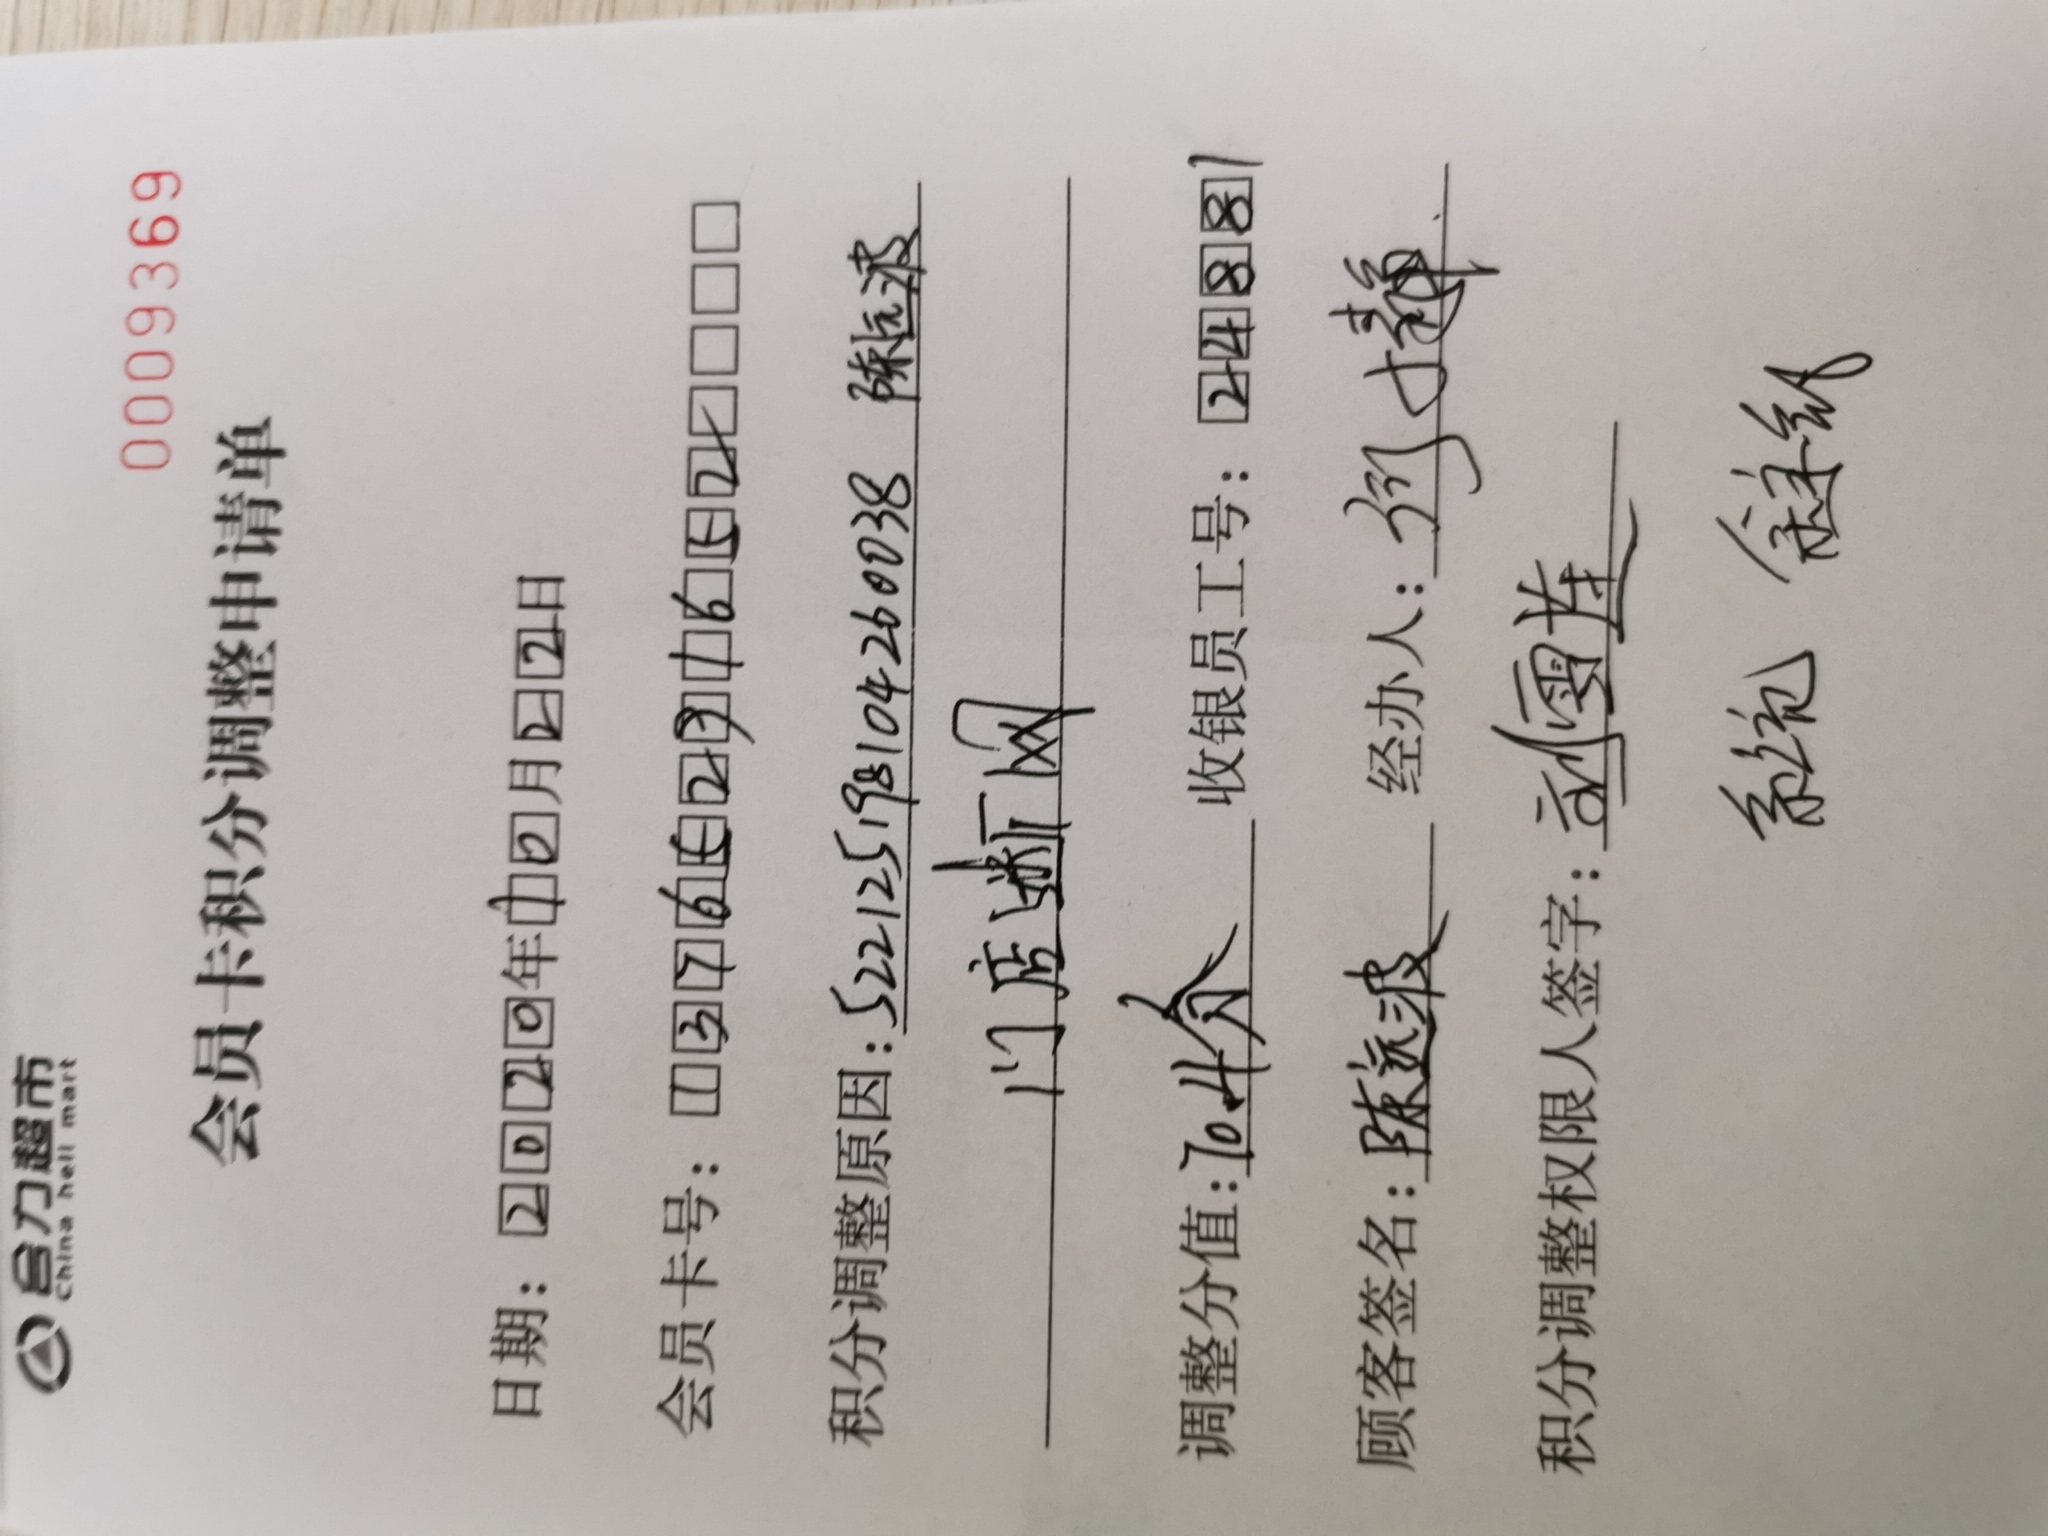 合力超市
China heli mart
0009369
会员卡积分调整申请单
日期：2020年10月22日
会员卡号：13765291652
积分调整原因：522125198104260038 陈远波
门店断网
调整分值：70.4分 收银员工号：24881
顾客签名：陈远波 经办人：
积分调整权限人签字：